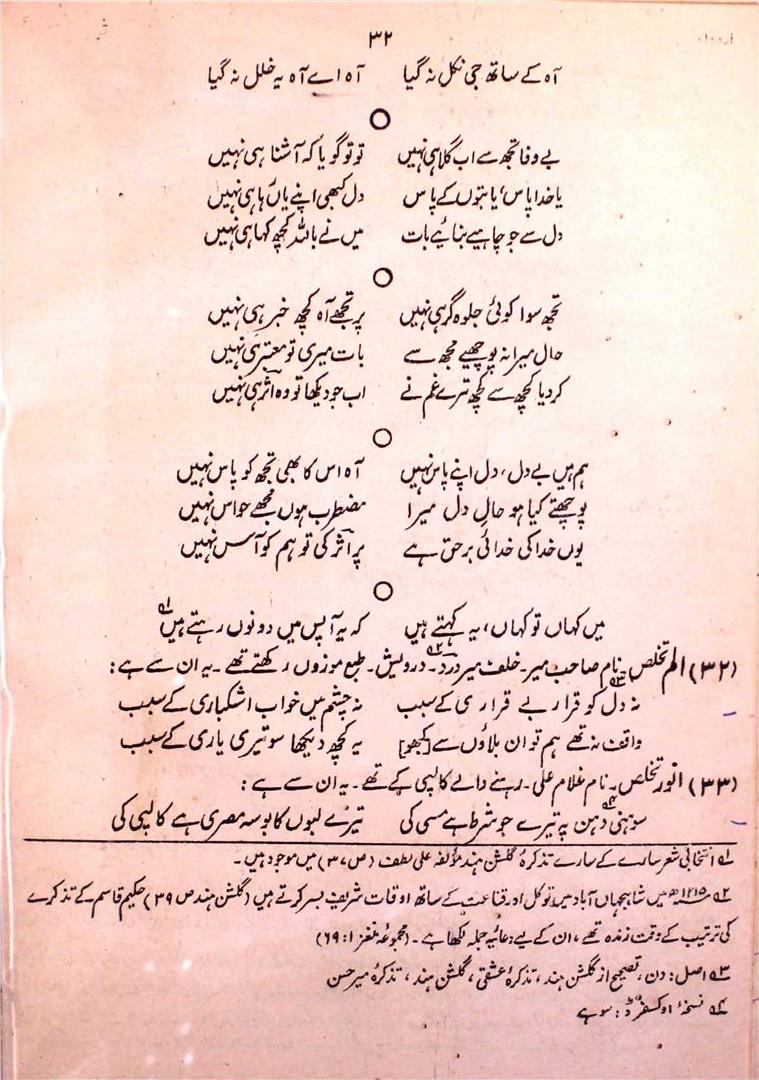 ۳۲
آہ کے ساتھ جی نکل نہ گیا آہ اے آہ یہ خلل نہ گیا
بے وفا تجھ سے اب گلا ہی نہیں تو تو گویا کہ آشنا ہی نہیں
یا خدا پاس، یا بتوں کے پاس دل کبھی اپنے یاں رہا ہی نہیں
دل سے جو چاہیے بنائیے بات میں نے باللہ کچھ کہا ہی نہیں
تجھ سوا کوئی جلوہ گر ہی نہیں پر تجھے آہ کچھ خبر ہی نہیں
حال میرا نہ پوچھیے مجھ سے بات میری تو معتبر ہی نہیں
کر دیا کچھ سے کچھ ترے غم نے اب جو دیکھا تو وہ اثر ہی نہیں
ہم ہیں بے دل، دل اپنے پاس نہیں آہ اس کا بھی تجھ کو پاس نہیں
پوچھتے کیا ہو حالِ دل میرا مضطرب ہوں مجھے حواس نہیں
یوں خدا کی خدائی برحق ہے پر اثر کی تو ہم کو آس نہیں
میں کہاں تو کہاں، یہ کہتے ہیں کہ یہ آپس میں دونوں رہتے ہیں ؎۱
(۳۲) الم تخلص۔ نام صاحب میر۔ خلف میر درد ؎۲۔ درویش۔ طبع موزوں رکھتے تھے۔ یہ ان سے ہے :
نہ دل کو ؎۳ قرار بے قراری کے سبب نہ چشم میں خواب اشکباری کے سبب
واقف نہ تھے ہم تو ان بلاؤں سے [کبھو] یہ کچھ دیکھا سو تیری یاری کے سبب
(۳۳) انور تخلص۔ نام غلام علی۔ رہنے والے کالپی کے تھے۔ یہ ان سے ہے :
سوہنی ؎۴ دہن پہ تیرے جو شرط ہے مسی کی تیرے لبوں کا بوسہ مصری ہے کالپی کی
؎۱ انتخابی شعر سارے کے سارے تذکرۂ گلشن ہند مؤلفہ علی لطف (ص ۳۷) میں موجود ہیں۔
؎۲ ۱۲۱۵ھ میں شاہجہاں آباد میں توکل اور قناعت کے ساتھ اوقات شریف بسر کرتے ہیں (گلشن ہند ص ۳۹) حکیم قاسم کے تذکرے
کی ترتیب کے وقت زندہ تھے، ان کے لیے دعائیہ جملہ لکھا ہے۔ (مجموعہ نغز ۱: ۶۹)
؎۳ اصل: دن، تصحیح از گلشن ہند، تذکرۂ عشقی، گلشن ہند، تذکرۂ میر حسن
؎۴ نسخۂ اوکسفرڈ: سو ہے